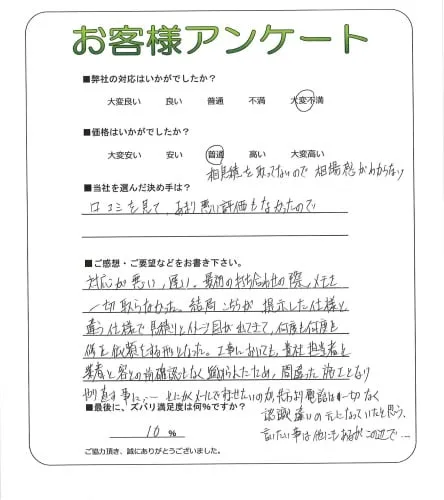 お客様アンケート
■弊社の対応はいかがでしたか?
大変良い 良い 普通 不満 大変不満
■価格はいかがでしたか?
大変安い 安い 普通 高い 大変高い
相見積を取ってないので相場感がわからない
■当社を選んだ決め手は?
口コミを見て、あまり悪い評価もなかったので
■ご感想・ご要望などをお書き下さい。
対応が悪い、遅い。最初の打ち合わせの際、メモを
一切取らなかった。結局こちらが提示した仕様と
違う仕様で見積りとイメージ図がでてきて、何度も何度も
修正依頼をする形となった。工事においても、貴社担当者と
業者と客との事前確認もなく進められたため、間違った施工となり
やり直す事に… とにかくメールで済ませたいのか、先方より電話は一切なく
認識違いの元になっていたと思う。
言いたい事は他にもあるがこの辺で…
■最後に、ズバリ満足度は何%ですか?
10 %
ご協力頂き、誠にありがとうございました。